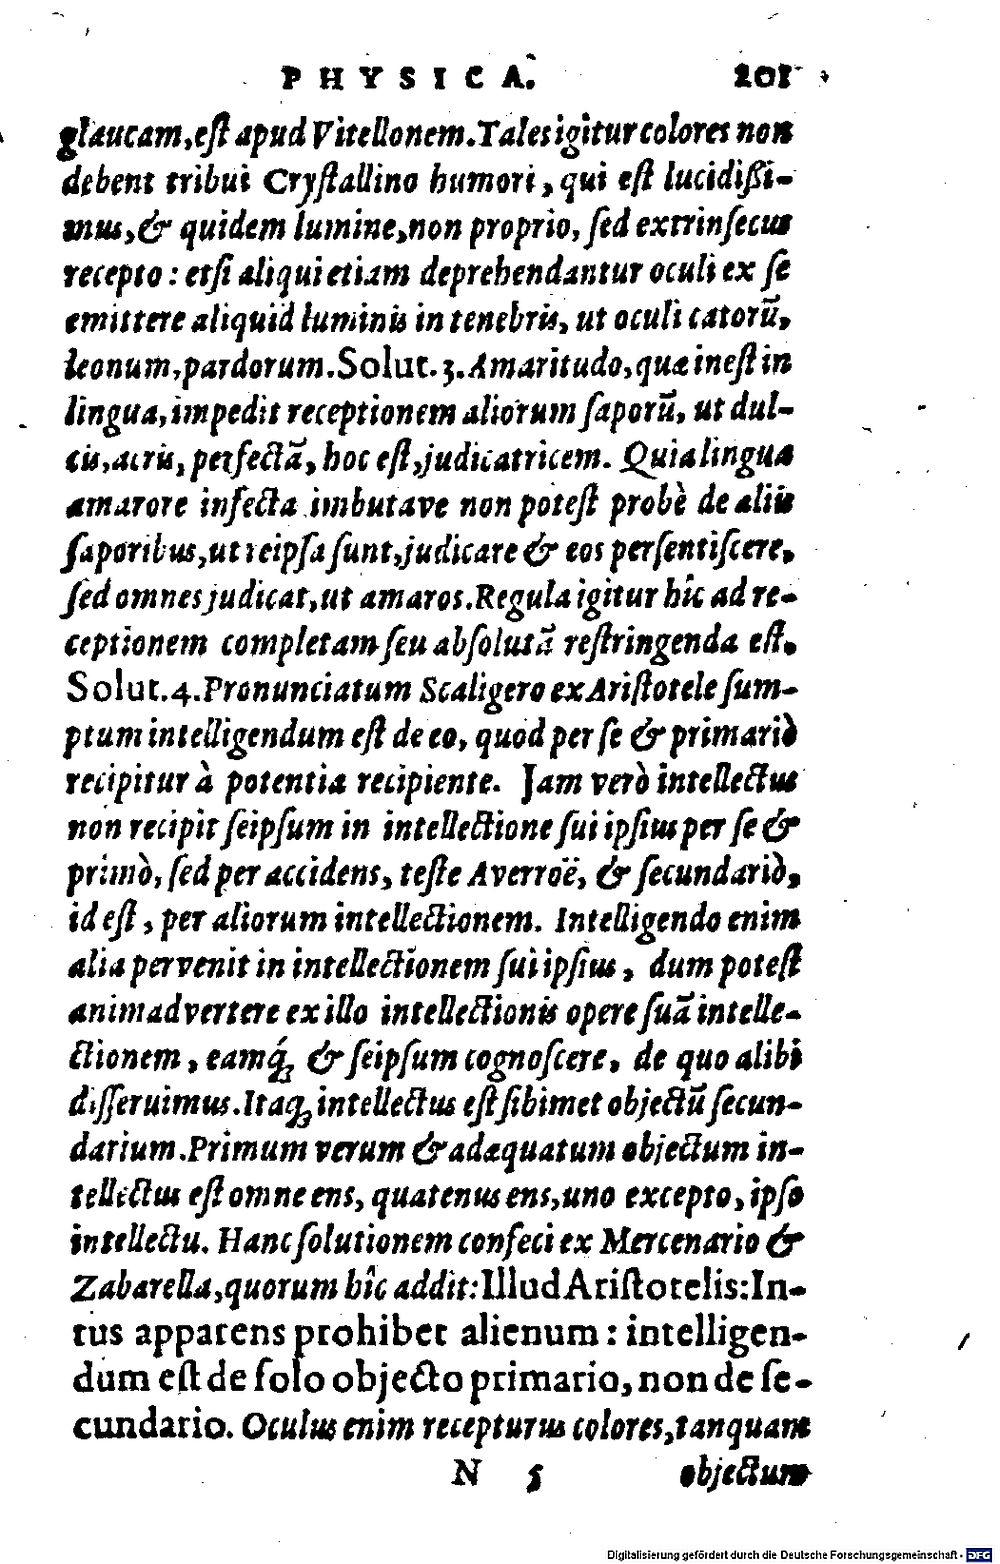 PHYSICA. 201
glaucam, eſt apud Vitellonem. Tales igitur colores non
debent tribui Cryſtallino humori, qui eſt lucidißi-
mus, & quidem lumine, non proprio, ſed extrinſecus
recepto: etſi aliqui etiam deprehendantur oculi ex ſe
emittere aliquid luminis in tenebris, ut oculi catorũ,
leonum, pardorum. Solut. 3. Amaritudo, quæ ineſt in
lingua, impedit receptionem aliorum ſaporũ, ut dul-
cis, acris, perfectã, hoc eſt, judicatricem. Quia lingua
amarore infecta imbutave non poteſt probè de aliis
ſaporibus, ut reipſa ſunt, judicare & eos perſentiſcere,
ſed omnes judicat, ut amaros. Regula igitur hîc ad re-
ceptionem completam ſeu abſolutã reſtringenda eſt.
Solut. 4. Pronunciatum Scaligero ex Ariſtotele ſum-
ptum intelligendum eſt de eo, quod per ſe & primariò
recipitur à potentia recipiente. Jam verò intellectus
non recipit ſeipſum in intellectione ſui ipſius per ſe &
primò, ſed per accidens, teſte Averroë, & ſecundariò,
id eſt, per aliorum intellectionem. Intelligendo enim
alia pervenit in intellectionem ſui ipſius, dum poteſt
animadvertere ex illo intellectionis opere ſuã intelle-
ctionem, eamq́ꝫ & ſeipſum cognoſcere, de quo alibi
diſſeruimus. Itaqꝫ intellectus eſt ſibimet objectũ ſecun-
darium. Primum verum & adæquatum objectum in-
tellectus eſt omne ens, quatenus ens, uno excepto, ipſo
intellectu. Hanc ſolutionem confeci ex Mercenario &
Zabarella, quorum hîc addit: Illud Ariſtotelis: In-
tus apparens prohibet alienum: intelligen-
dum eſt de ſolo objecto primario, non de ſe-
cundario. Oculus enim recepturus colores, tanquam
N 5 objectum
Digitalisierung gefördert durch die Deutsche Forschungsgemeinschaft - DFG